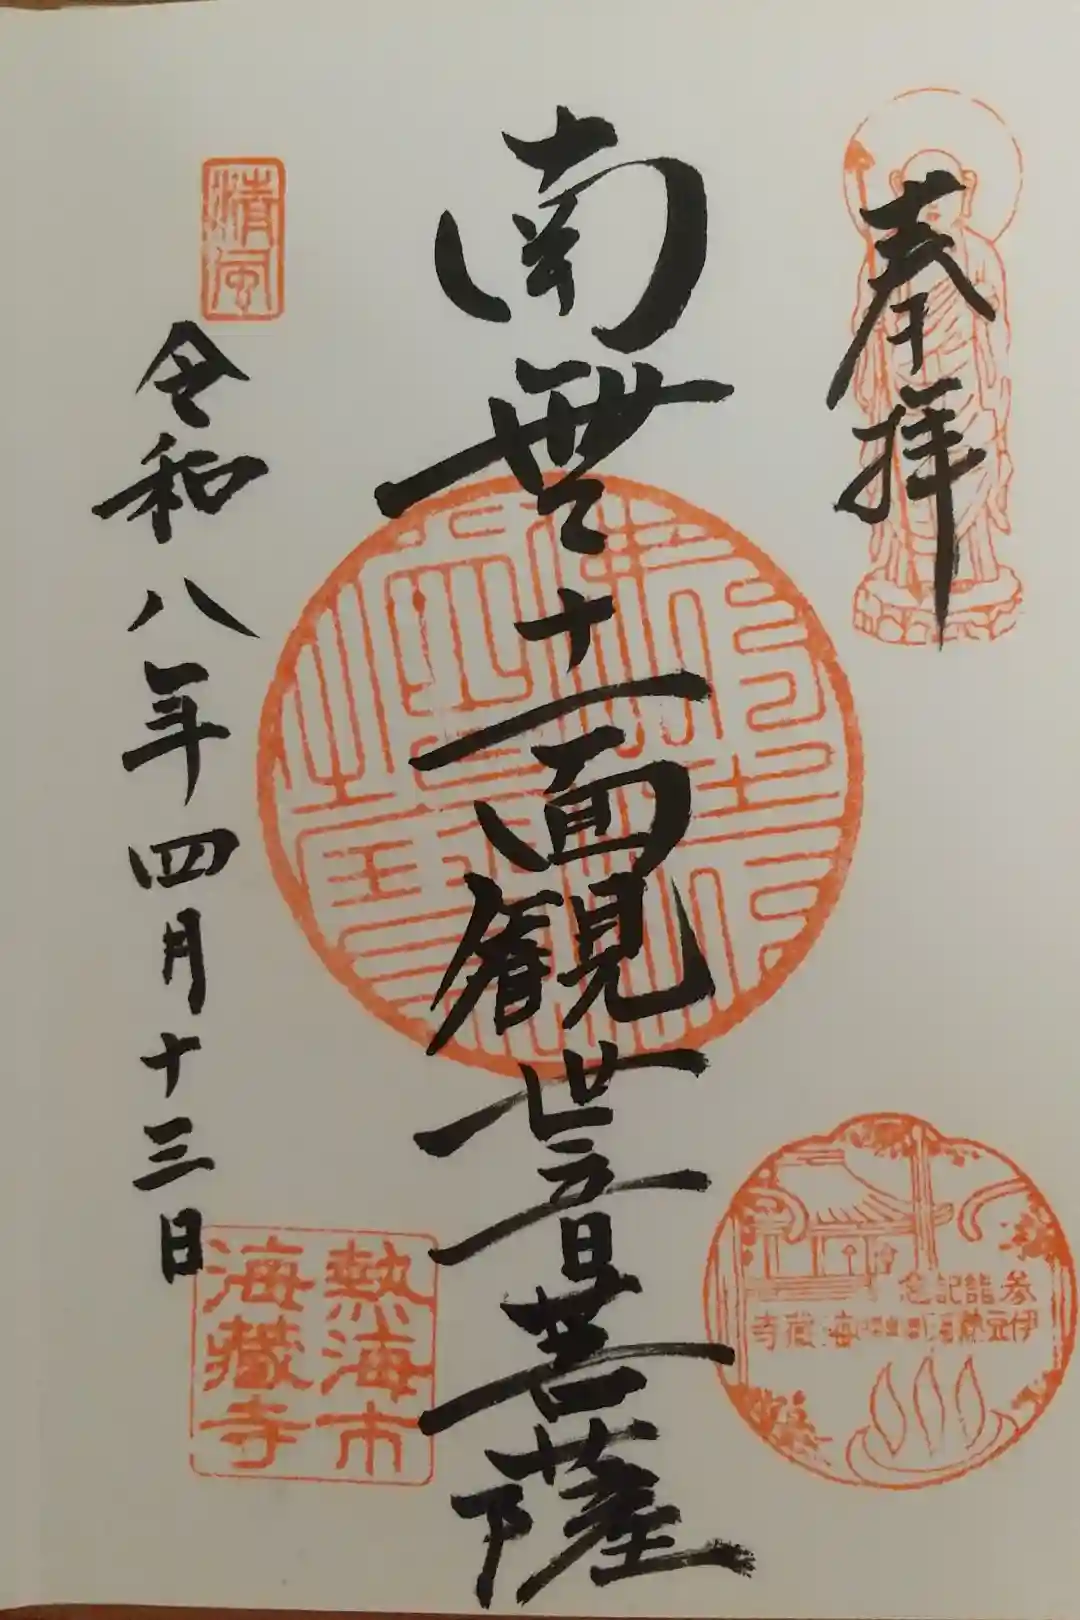 奉拝
南無十一面観世音菩薩
令和八年四月十三日
清風
熱海市
海蔵寺
参詣記念
海蔵寺